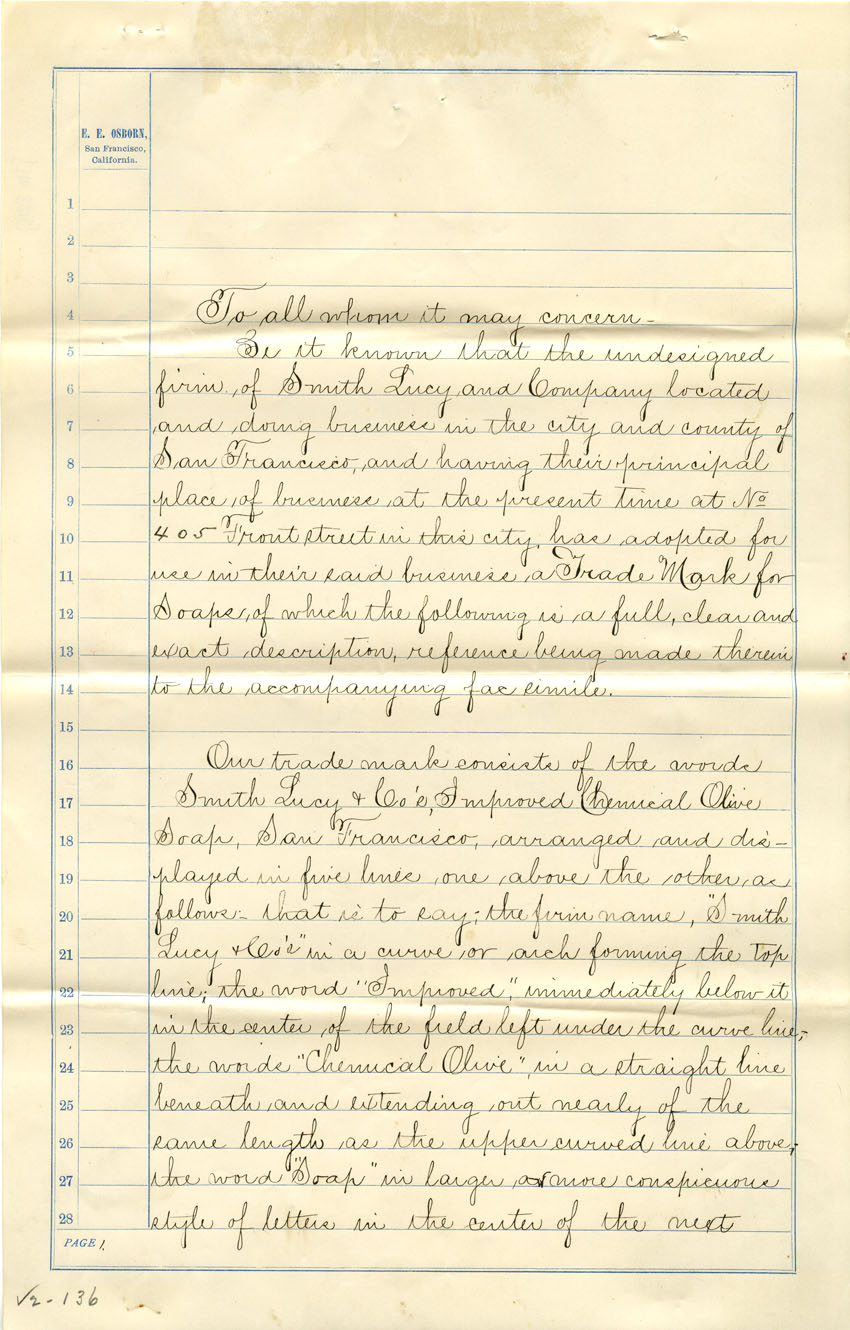 E. E. OSBORN,
San Francisco,
California.
1
2
3
4 To all whom it may concern–
5 Be it known that the undesigned
6 firm, of Smith Lucy and Company located
7 and doing business in the city and county of
8 San Francisco, and having their principal
9 place of business at the present time at No
10 405 Front street in this city, has adopted for
11 use in their said business a Trade Mark for
12 Soaps, of which the following is a full, clear and
13 exact description, reference being made therein
14 to the accompanying fac simile.
15
16 Our trade mark consists of the words
17 Smith Lucy & Co's, Improved Chemical Olive
18 Soap, San Francisco, arranged and dis–
19 played in five lines one above the other, as
20 follows– that is to say; the firm name, "Smith
21 Lucy & Co's" in a curve or arch forming the top
22 line; the word "Improved", immediately below it
23 in the center of the field left under the curve line;
24 the words "Chemical Olive", in a straight line
25 beneath, and extending out nearly of the
26 same length as the upper curved line above;
27 the word "Soap" in larger or more conspicuous
28 style of letters in the center of the next
PAGE 1.
V2-136